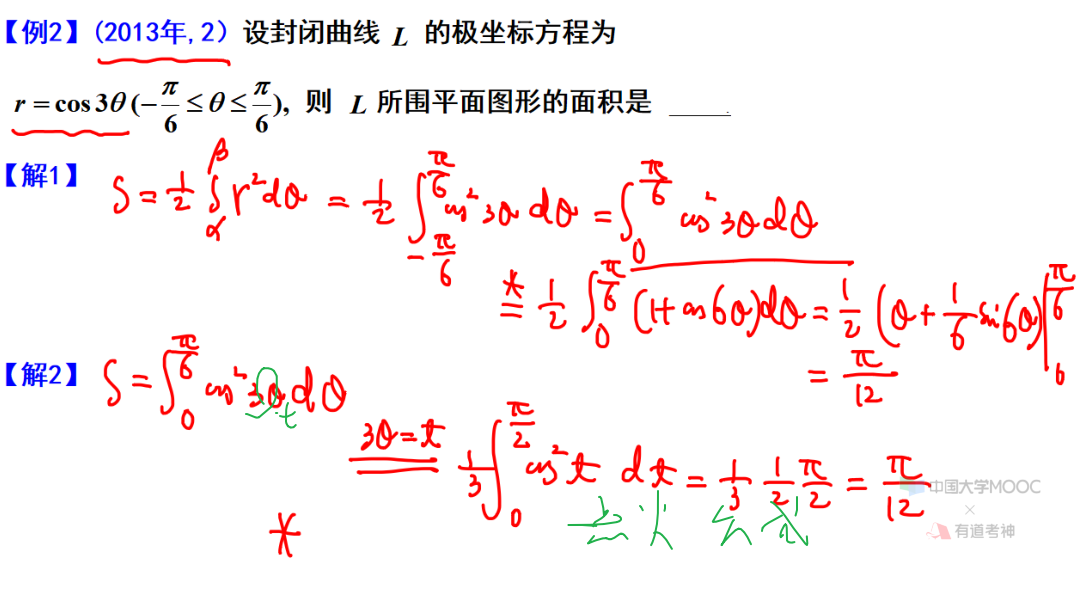 【例2】(2013年, 2) 设封闭曲线 L 的极坐标方程为
r = cos 3θ (−π/6 ≤ θ ≤ π/6), 则 L 所围平面图形的面积是 _____.
【解1】 S = 1/2 ∫_α^β r² dθ = 1/2 ∫_{−π/6}^{π/6} cos² 3θ dθ = ∫_0^{π/6} cos² 3θ dθ
* = 1/2 ∫_0^{π/6} (1 + cos 6θ) dθ = 1/2 (θ + 1/6 sin 6θ) |_0^{π/6}
= π/12
【解2】 S = ∫_0^{π/6} cos² 3θ dθ
t
3θ = t
1/3 ∫_0^{π/2} cos² t dt = 1/3 1/2 π/2 = π/12
点火公式
*
中国大学MOOC
×
有道考神